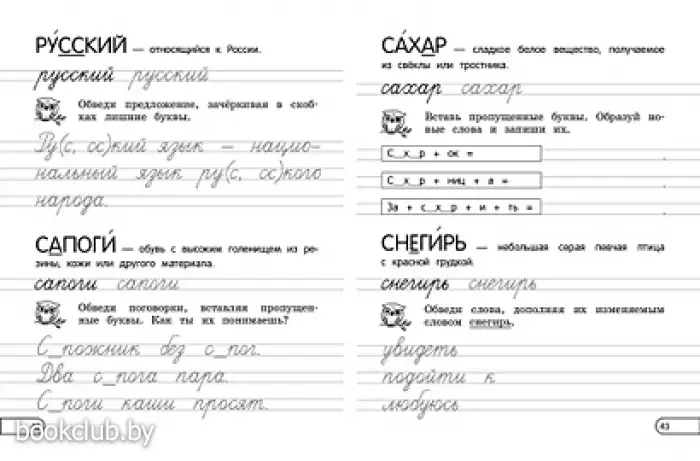 РУ́ССКИЙ — относящийся к России.
русский русский
Обведи предложение, зачёркивая в скоб-
ках лишние буквы.
Ру(с, сс)кий язык — нацио-
нальный язык ру(с, сс)кого
народа.
САПОГИ́ — обувь с высоким голенищем из ре-
зины, кожи или другого материала.
сапоги сапоги
Обведи поговорки, вставляя пропущен-
ные буквы. Как ты их понимаешь?
С_пожник без с_пог.
Два с_пога пара.
С_поги каши просят.
СА́ХАР — сладкое белое вещество, получаемое
из свёклы или тростника.
сахар сахар
Вставь пропущенные буквы. Образуй но-
вые слова и запиши их.
С_х_р + ок =
С_х_р + ниц + а =
За + с_х_р + и + ть =
СНЕГИ́РЬ — небольшая серая певчая птица
с красной грудкой.
снегирь снегирь
Обведи слова, дополняя их изменяемым
словом снегирь.
увидеть
подойти к
любуюсь
43
bookclub.by